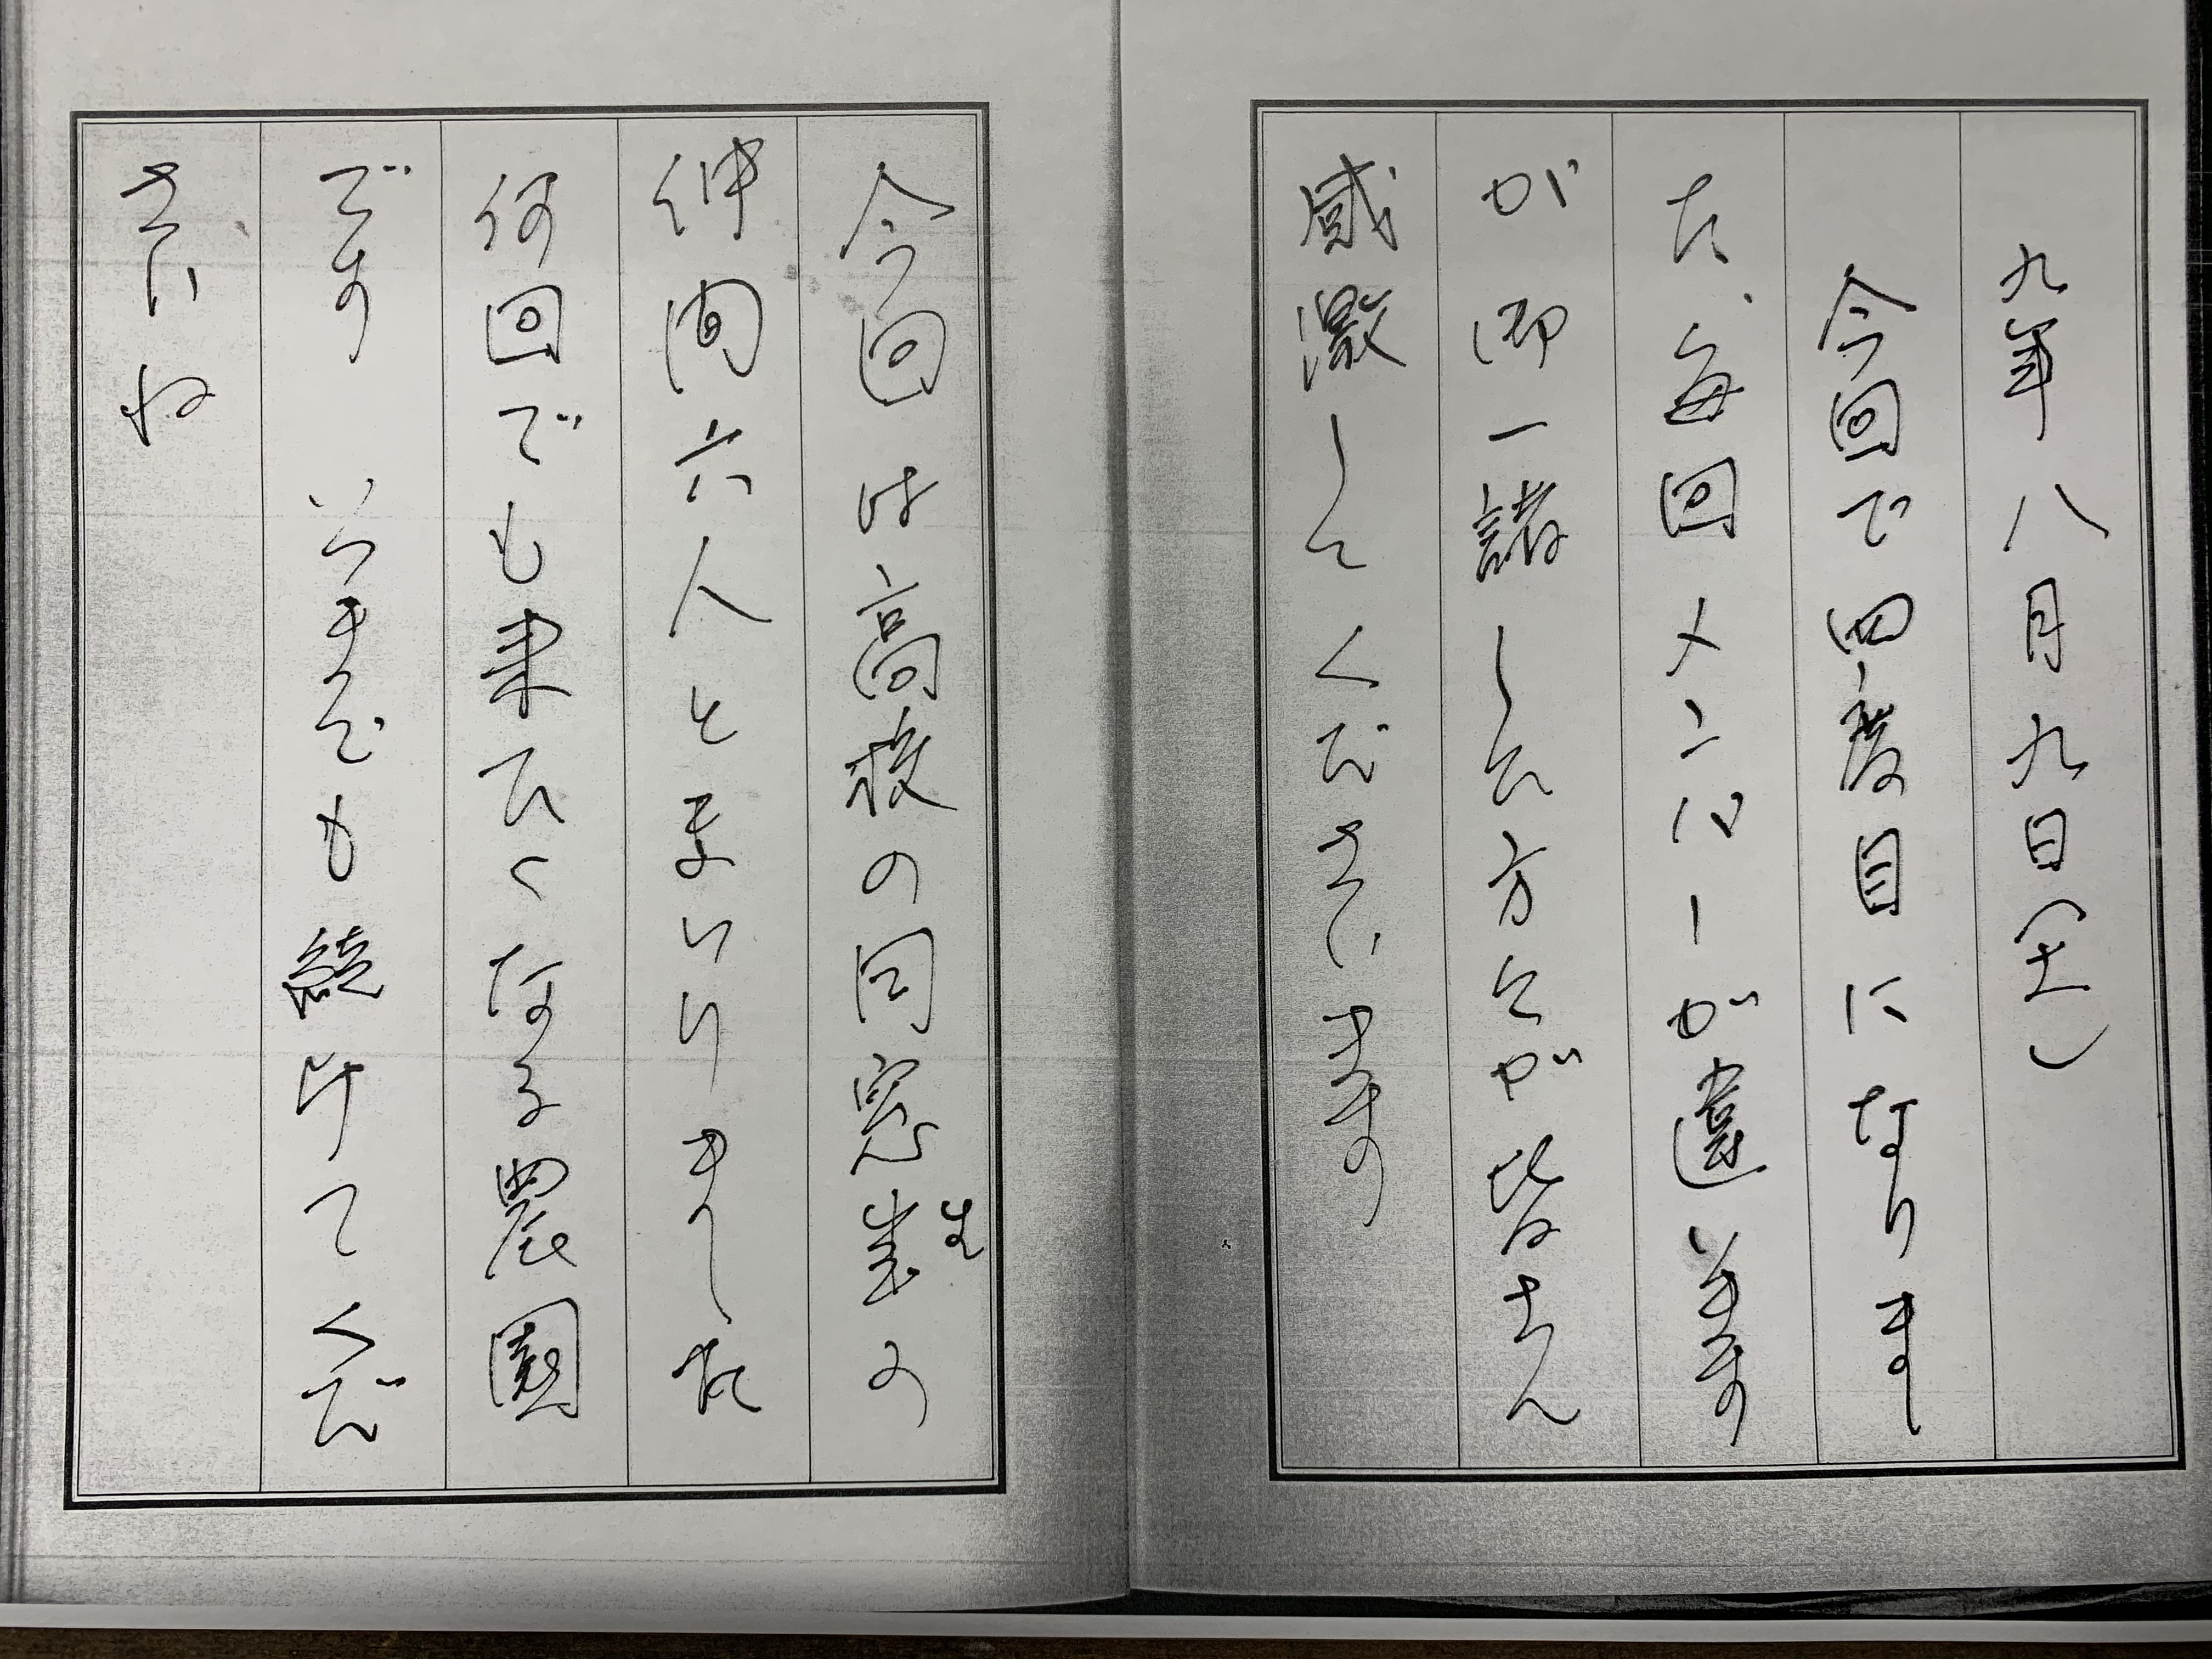 九年八月九日(土)
今回で四度目になりまし
た、毎回メンバーが違います
が御一諸した方々が皆さん
感激してくださいます
今回は高校の同窓生の
仲間六人とまいりました
何回でも来たくなる農園
です いつまでも続けてくだ
さいね